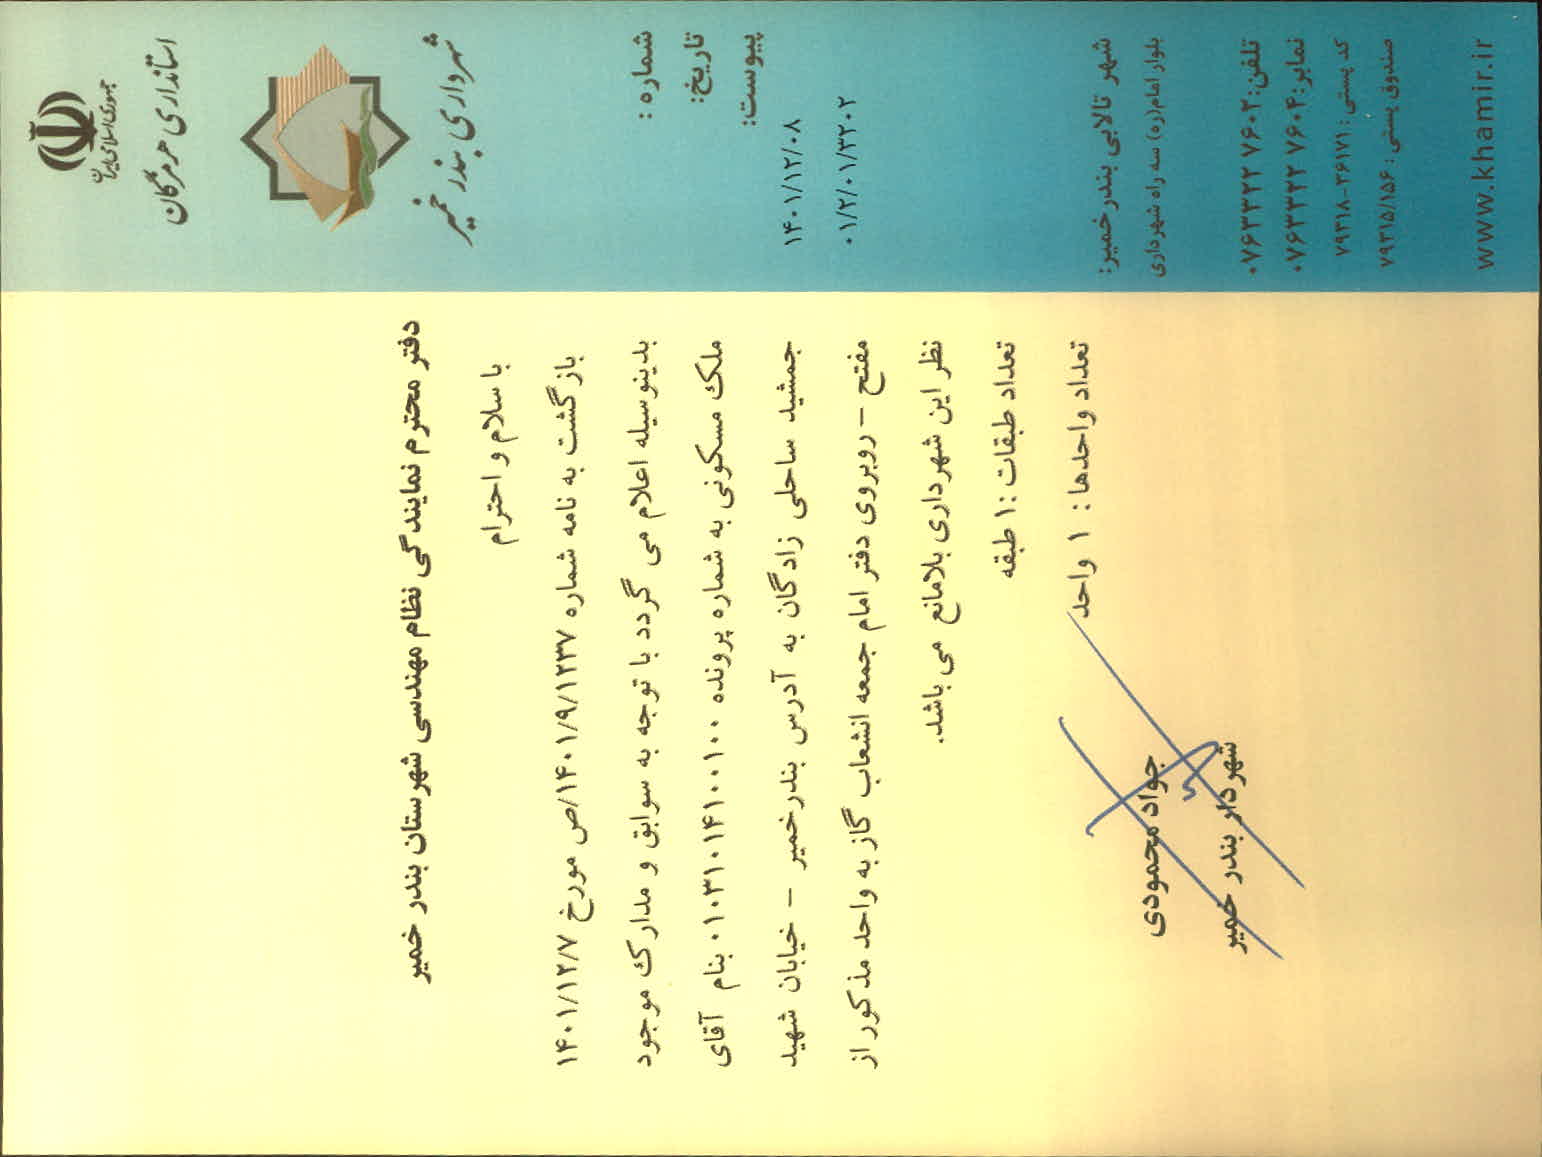 جمهوری اسلامی ایران
استانداری هرمزگان
شهرداری بندر خمیر
شماره :
تاریخ:
پیوست:
۱۴۰۱/۱۲/۰۸
۰۱/۲/۰۱/۳۲۰۲
دفتر محترم نمایندگی نظام مهندسی شهرستان بندر خمیر
با سلام و احترام
بازگشت به نامه شماره ۱۴۰۱/۹/۱۲۳۷/ص مورخ ۱۴۰۱/۱۲/۷
بدینوسیله اعلام می گردد با توجه به سوابق و مدارک موجود
ملک مسکونی به شماره پرونده ۰۱۰۳۱۰۱۴۱۰۰۱۰۰ بنام آقای
جمشید ساحلی زادگان به آدرس بندرخمیر – خیابان شهید
مفتح – روبروی دفتر امام جمعه انشعاب گاز به واحد مذکور از
نظر این شهرداری بلامانع می باشد.
تعداد طبقات :۱ طبقه
تعداد واحدها : ۱ واحد
جواد محمودی
شهردار بندر خمیر
شهر تالابی بندرخمیر:
بلوار امام(ره) سه راه شهرداری
تلفن: ۰۷۶۳۳۲۲ ۷۶۰۲
نمابر: ۰۷۶۳۳۲۲ ۷۶۰۴
کد پستی : ۷۹۳۱۸-۳۶۱۷۱
صندوق پستی : ۷۹۳۱۵/۱۵۶
www.khamir.ir